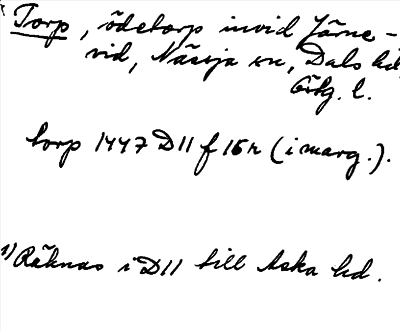 Torp, ödetorp invid Järne-
vid, Nässja sn, Dals hd,
Ög. l.
torp 1447 D11 f 16r (i marg.).
1) Räknas i D11 till Aska hd.